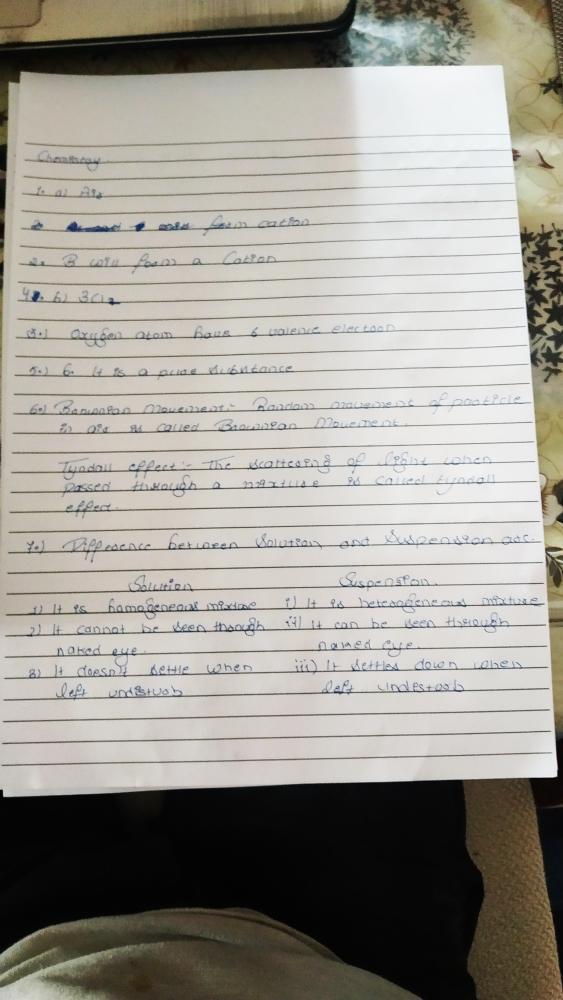 Chemistry.
1. a) Air
2. form cation
2. B will form a Cation
4. b) 3Cl2
3.) Oxygen atom have 6 valence electron
5.) 6. It is a pure substance
6.) Brownian Movement:- Random movement of particle
in air is called Brownian Movement.
Tyndall effect:- The scattering of light when
passed through a mixture is called tyndall
effect.
7.) Difference between Solution and Suspension are.
Solution Suspension.
1) It is homogeneous mixture i) It is heterogeneous mixture
2) It cannot be seen though ii) It can be seen through
naked eye. naked eye.
3) It doesn't settle when iii) It settles down when
left undisturb left undesturb